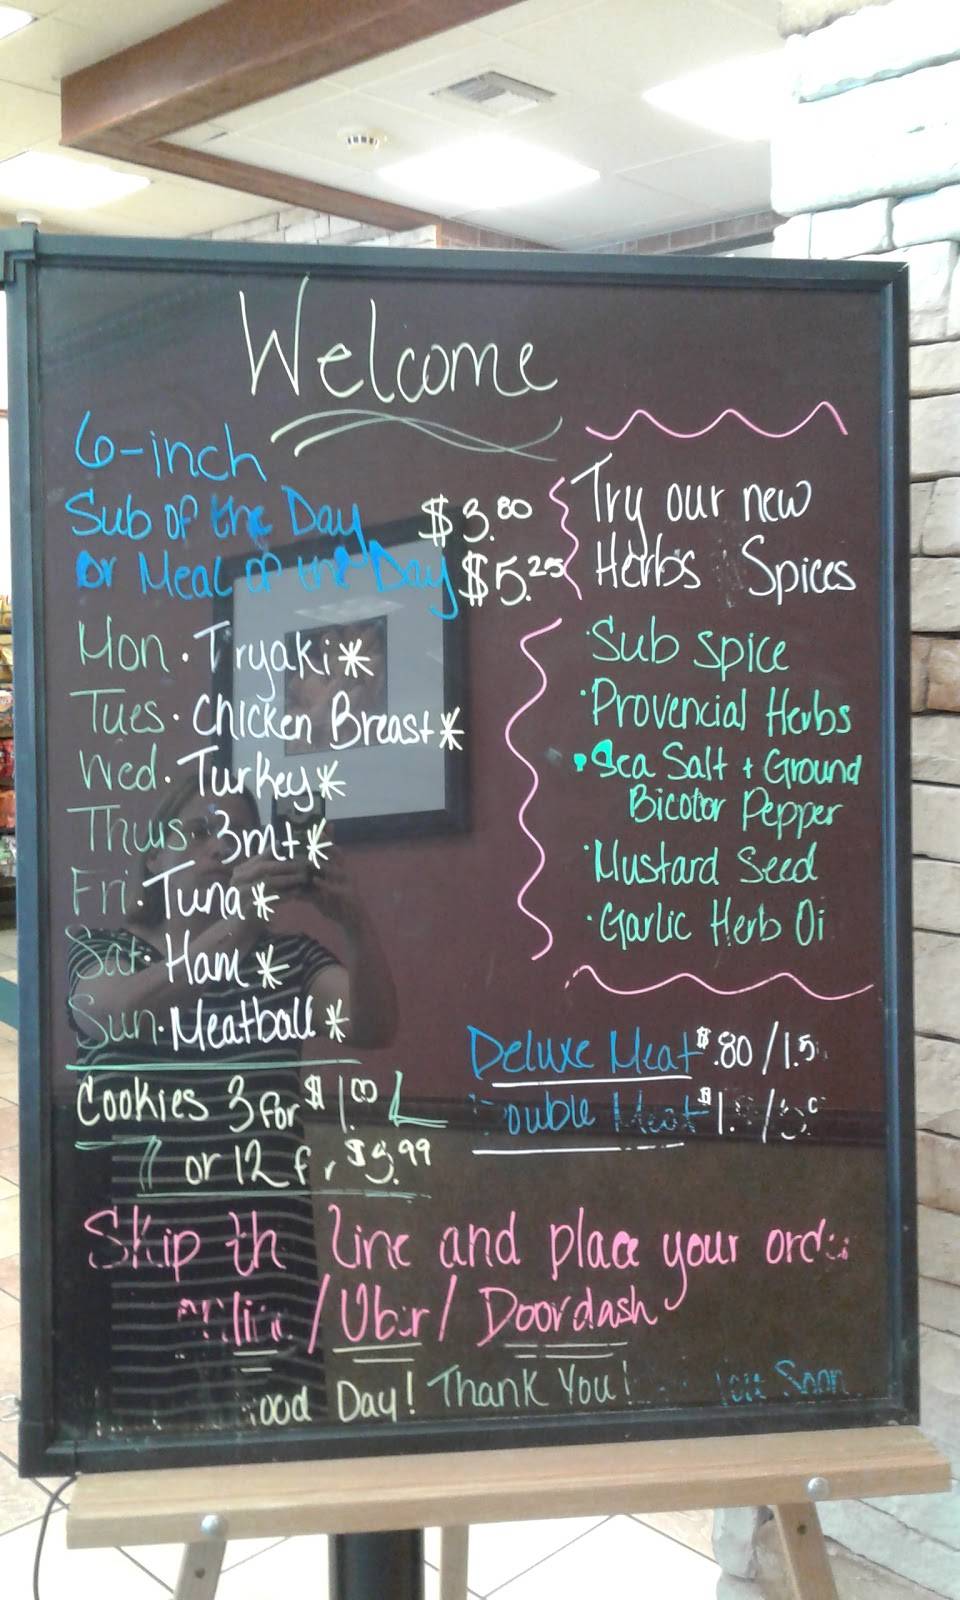 Welcome
6-inch
Sub of the Day $3.80
or Meal of the Day $5.25
Mon. Tryaki*
Tues. Chicken Breast*
Wed. Turkey*
Thurs. 3mt*
Fri. Tuna*
Sat. Ham*
Sun. Meatball*
Cookies 3 for $1.00
or 12 f r $3.99
Try our new
Herbs Spices
·Sub spice
·Provencial Herbs
·Sea Salt + Ground
Bicotor Pepper
·Mustard Seed
·Garlic Herb Oi
Deluxe Meat $.80/1.5
ouble Meat
Skip th line and place your
/Uber/Doordash
ood Day! Thank You! Soon